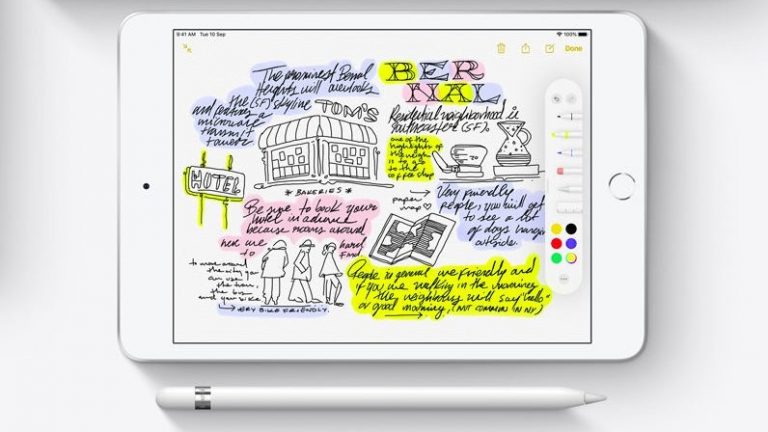 9:41 AM Tue 10 Sep
100%
Done
The prominent Bernal
Heights hill overlooks
the (SF) skyline
and features a
microwave
transmit
tower
TOM'S
* BAKERIES *
HOTEL
BER
NAL
Residential neighborhood is
southeastern (SF).
one of the
highlights of
the neigh
is to go
to the
coffee shop
paper
map
Very friendly
people, you will get
to see a lot
of dogs hanging
outside.
Be sure to book your
hotel in advance
because rooms around
here are hard
to find
to move around
the city you
can use
the
the bus
and your bike.
VERY BIKE FRIENDLY.
People in general are friendly and
if you are walking in the mornings
the neighbors will say "hello"
or good morning, (not common in NY)